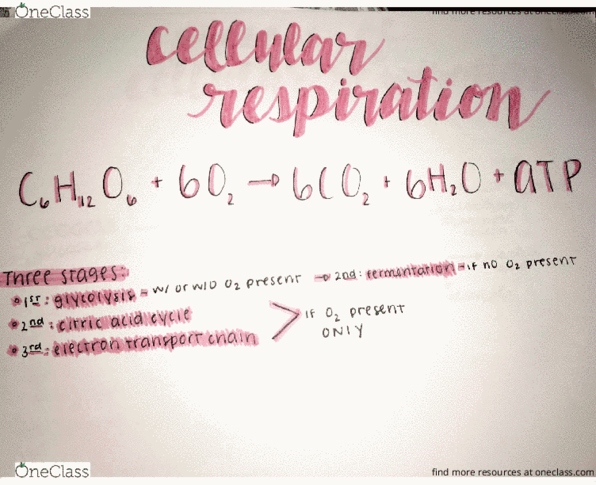 OneClass
find more resources at oneclass.com
cellular
respiration
C₆H₁₂O₆ + 6O₂ → 6CO₂ + 6H₂O + ATP
Three stages:
• 1st: glycolysis = w/ or w/o O₂ present → 2nd: fermentation = if no O₂ present
• 2nd: citric acid cycle
• 3rd: electron transport chain
> if O₂ present
ONLY
OneClass
find more resources at oneclass.com